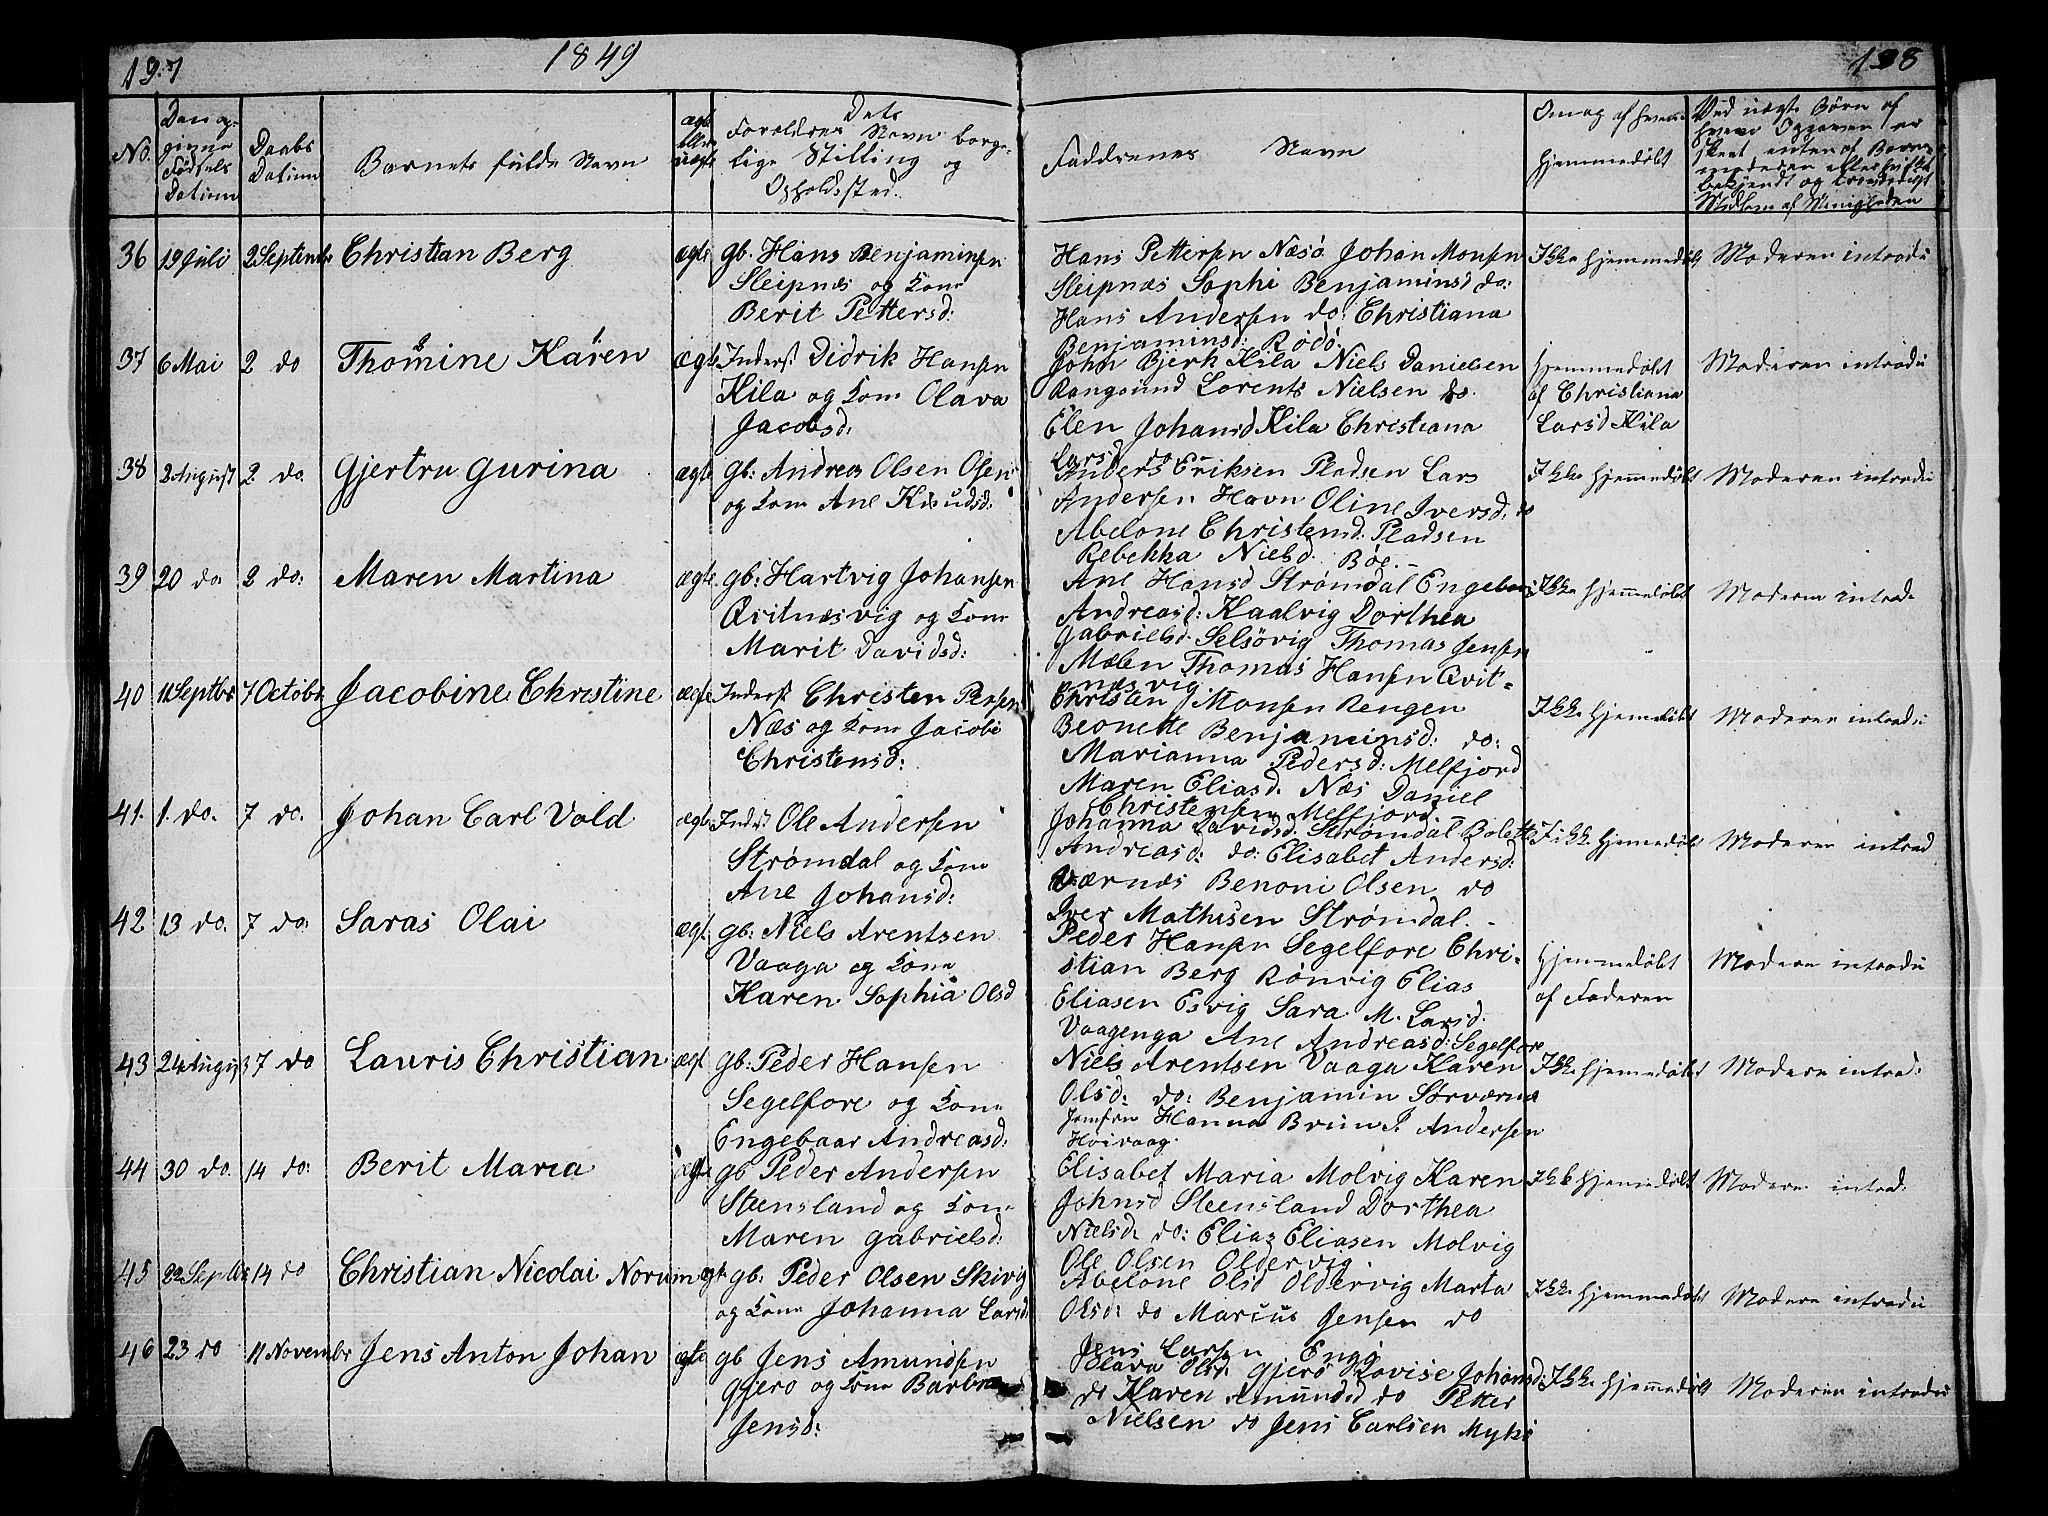 137
1849
138
No.
Den op-
givne
Fødsels
Datum
Daabs
Datum
Barnets fulde Navn
ægte
eller
uægte
Dets
Forældres Navn borge-
lige Stilling og
Opholdssted.
Faddrenes Navn
Om og af hvem
hjemmedøbt
Ved uægte Børn af
hvem Opgaven er
skeet enten af Barne-
moderen eller hvilket
bekjendt og troværdigt
Medlem af Menigheden
36 19 Juli 2 Septembr Christian Berg ægte gb. Hans Benjaminsen
Sleipnæs og Kone
Berit Pettersd:
Hans Pettersen Næsø Johan Monsen
Sleipnæs Sophi Benjaminsd do:
Hans Andersen do: Christiana
Benjaminsd: Rødø:
Ikke hjemmedøbt Moderen introdu
37 6 Mai 2 do Thomine Karen ægte Inderst Didrik Hansen
Kila og Kone Olava
Jacobsd:
John Bjerk Kila Niels Danielsen
Rangsund Lorents Nielsen do.
Elen Johansd Kila Christiana
Larsd do –
hjemmedøbt
af Christiana
Larsd Kila
Moderen introdu
38 2 August 2 do Gjertru Gurina ægte gb: Andreas Olsen Olsen
og Kone Ane Knudsd:
Anders Eriksen Pladsen Lars
Andersen Havn Oline Iversd: do
Abelone Christensd: Pladsen
Rebekka Nielsd. Bøe. –
Ikke hjemmedøbt Moderen introdu
39 20 do. 2 do: Maren Martina ægte. gb: Hartvig Johansen
Qvitnæsvig og Kone
Marit Davidsd:
Ane Hansd Strømdal Engebor
Andreasd: Kaalvig Dorthea
Gabrielsd. Selsøvig Thomas Jensen
Mælen Thomas Hansen Qvit=
næsvig.
Ikke hjemmedøbt Moderen introd.
40 11 Septbr 7 Octobr Jacobine Christine ægte Inderst Christen Pensen
Næs og Kone Jacobi
Christensd:
Christen Monsen Rengen
Beonette Benjaminsd: do:
Marianna Pedersd: Melfjord
Maren Eliasd. Næs Daniel
Christensen Melfjord –
Ikke hjemmedøbt Moderen introdu
41. 1. do. 7 do. Johan Carl Vold ægte Inderst Ole Andersen
Strømdal og Kone
Ane Johansd:
Johanna Davidsd. Strømdal Bolette
Andreasd: do: Elisabet Andersd:
Værnæs Benoni Olsen do
Iver Mathisen Strømdal. –
Ikke hjemmedøbt Moderen introd
42 13 do. 7 do: Saras Olai ægt. gb: Niels Arentsen
Vaaga og Kone
Karen Sophia Olsd
Peder Hansen Segelfore Chri-
stian Berg Rønvig Elias
Eliasen Esvig Sara M. Larsd.
Vaagenga Ane Andreasd: Segelfore
hjemmedøbt
af Faderen
Moderen introdu
43 24 August 7 do Lauris Christian ægt gb: Peder Hansen
Segelfore og Kone
Engebaar Andreasd:
Niels Arentsen Vaaga Karen
Olsd: do: Benjamin Storværnæs
Jomfru Hanna Bruun P. Andersen
Høivaag.
Ikke hjemmedøbt Moderen introd:
44 30 do. 14 do: Berit Maria ægte gb Peder Andersen
Steensland og Kone
Maren Gabrielsd:
Elisabet Maria Molvig Karen
Johnsd Steensland Dorthea
Nielsd. do: Elias Eliasen Molvig
Ole Olsen Oldervig
Ikke hjemmedøbt Moderen introd:
45 22 Septbr 14 do Christian Nicolai Norum ægt. gb: Peder Olsen Skivig
og Kone Johanna Larsd:
Abelone Olsd Oldervig Marta
Olsd: do Marcus Jensen do
Jens Larsen Engg
Ikke hjemmedøbt Moderen introdu
46 23 do 11 Novembr Jens Anton Johan ægte gb Jens Amundsen
Gjerø og Kone Barbra
Jensd:
Olava Olsd. Gjerø Lovise Johansd:
do Karen Amundsd do Petter
Nielsen do Jens Carlsen Myke
Ikke hjemmedøbt Moderen introdu